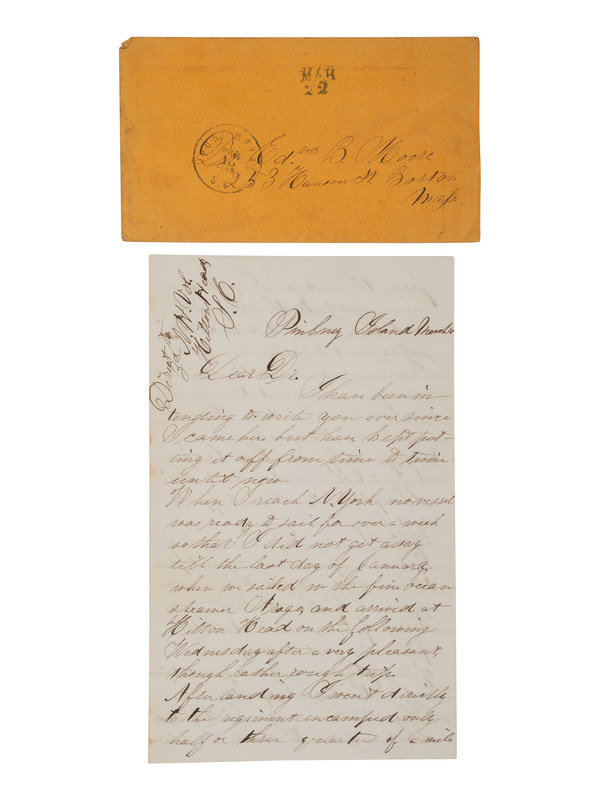 MAR
22
Dr Edwd B. Moore
253 Hanover St. Boston
Mass
Direct to
N.H. Vol.
Hilton Head
S.C.
Pinkney Island March
Dear Dr.
I have been in-
tending to write you ever since
I came here but have kept put-
ting it off from time to time
until now
When I reach N. York no vessel
was ready to sail for over a week
so that I did not get away
till the last day of January,
when we sailed in the fine ocean
steamer Arago, and arrived at
Hilton Head on the following
Wednesday after a very pleasant,
though rather rough trip.
After landing I went directly
to the regiment encamped only
half or three quarters of a mile